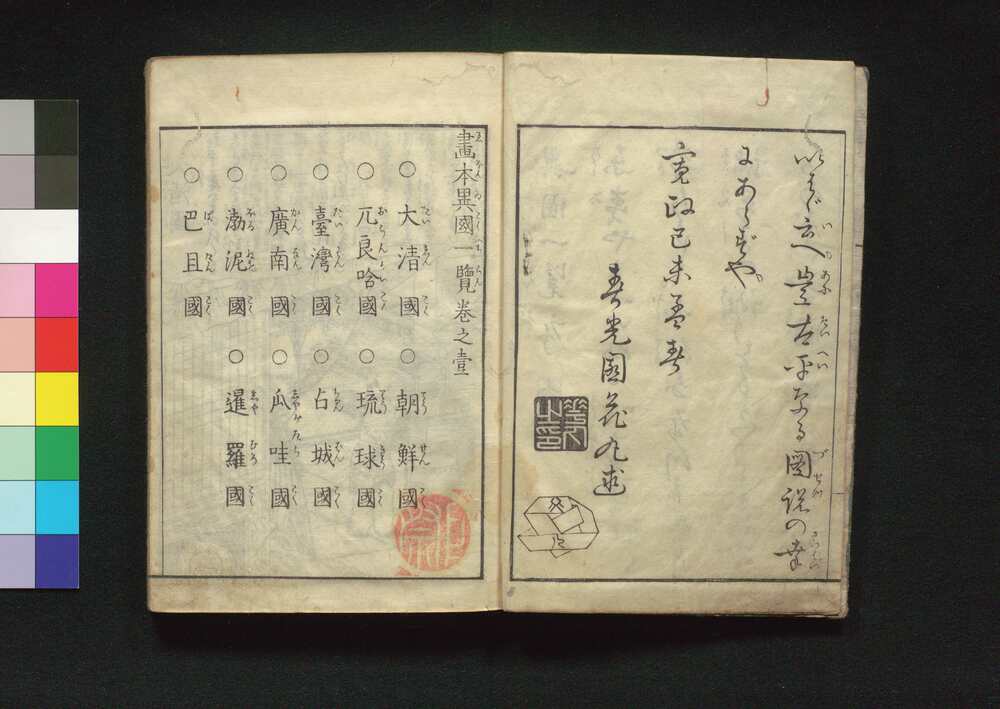 豈太平なる圖説の幸
にあらずや
寛政己未孟春
春光園花丸述
畫本異國一覽巻之壹
○大清國○朝鮮國
○兀良哈國○琉球國
○臺灣國○占城國
○廣南國○瓜哇國
○渤泥國○暹羅國
○巴且國